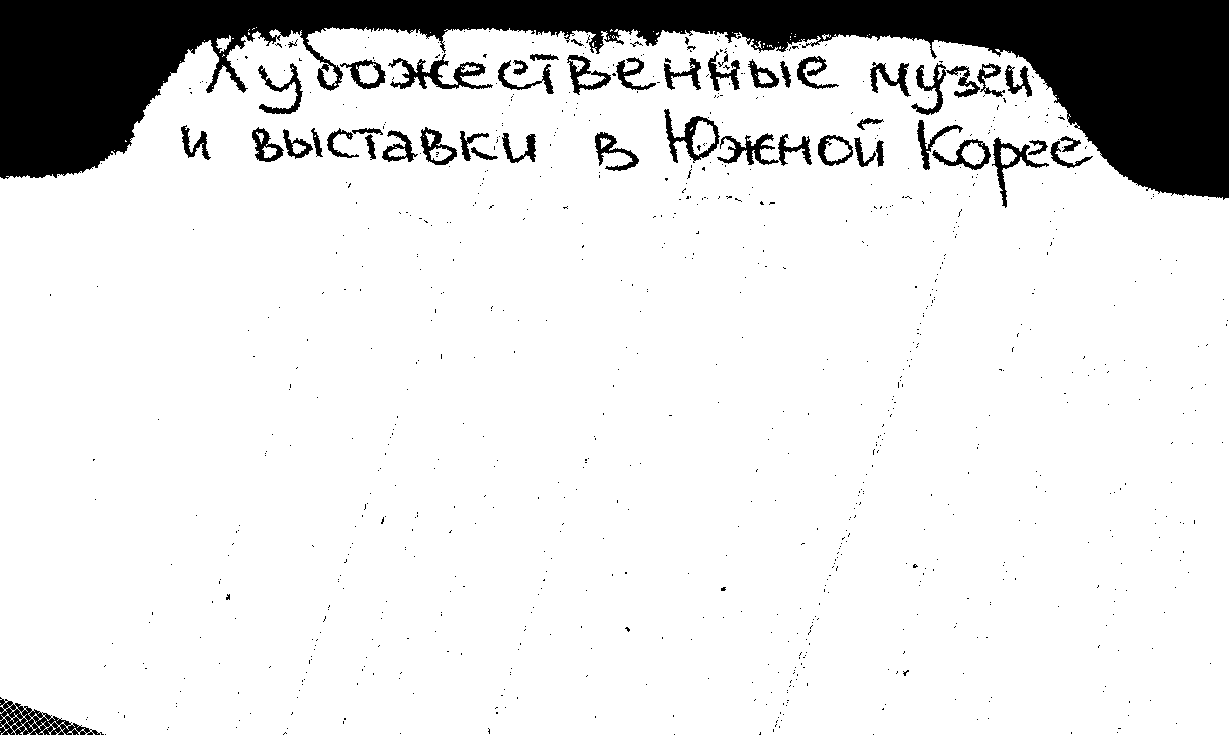 Художественные музеи
и выставки в Южной Корее